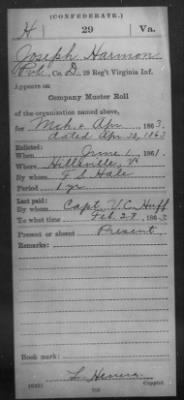 (CONFEDERATE.)
H 29 Va.
Joseph Harmon
Pvt, Co. D, 29 Reg't Virginia Inf.
Appears on
Company Muster Roll
of the organization named above,
for Mch & Apr, 1863.
dated Apr 30, 1863
Enlisted:
When June 1, 1861.
Where Hillsville, V
By whom F. S. Hale
Period 1 yr
Last paid:
By whom Capt. V. C. Huff
To what time Feb. 28, 1863
Present or absent Present
Remarks:
Book mark:
Copyist.